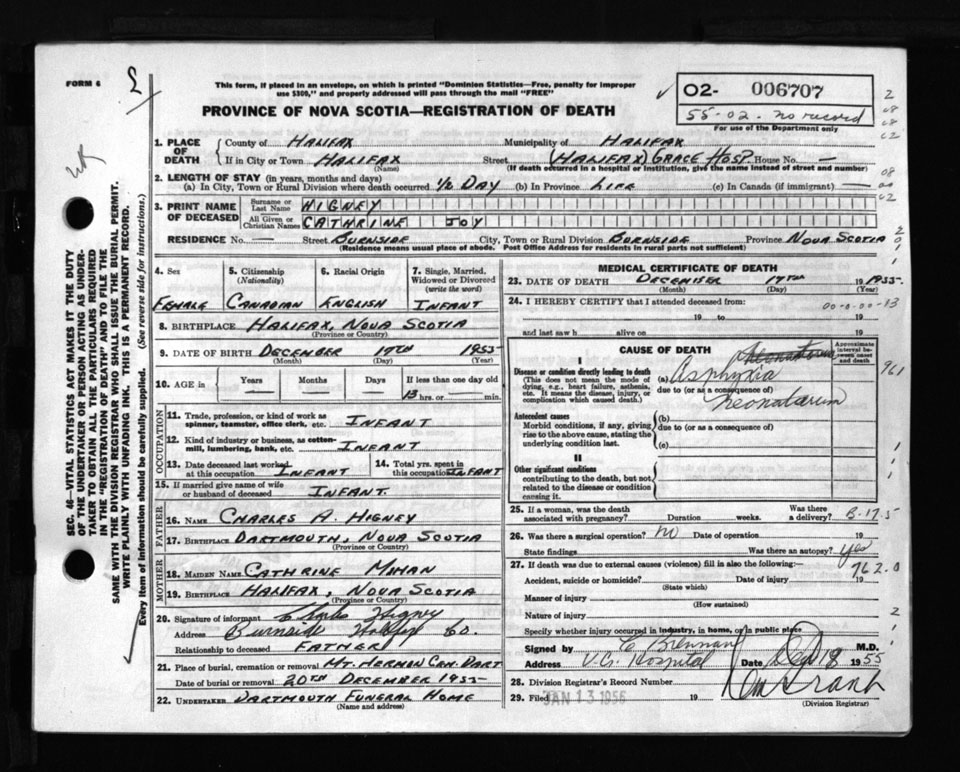 FORM 6
This form, if placed in an envelope, on which is printed "Dominion Statistics—Free, penalty for improper
use $300," and properly addressed will pass through the mail "FREE"
PROVINCE OF NOVA SCOTIA—REGISTRATION OF DEATH
02- 006707
55-02. no record
For use of the Department only
SEC. 46—VITAL STATISTICS ACT MAKES IT THE DUTY
OF THE UNDERTAKER OR PERSON ACTING AS UNDER-
TAKER TO OBTAIN ALL THE PARTICULARS REQUIRED
IN THE "REGISTRATION OF DEATH" AND TO FILE THE
SAME WITH THE DIVISION REGISTRAR WHO SHALL ISSUE THE BURIAL PERMIT.
WRITE PLAINLY WITH UNFADING INK. THIS IS A PERMANENT RECORD.
Every item of information should be carefully supplied. (See reverse side for instructions.)
1. PLACE OF DEATH County of HALIFAX Municipality of HALIFAX
If in City or Town HALIFAX (Name) Street (HALIFAX) GRACE HOSP. House No. —
(If death occurred in a hospital or institution, give the name instead of street and number)
2. LENGTH OF STAY (in years, months and days)
(a) In City, Town or Rural Division where death occurred 1/2 DAY (b) In Province LIFE (c) In Canada (if immigrant) —
3. PRINT NAME OF DECEASED Surname or Last Name HIGNEY
All Given or Christian Names CATHRINE JOY
RESIDENCE No. — Street BURNSIDE City, Town or Rural Division BURNSIDE Province NOVA SCOTIA
(Residence means usual place of abode. Post Office Address for residents in rural parts not sufficient)
4. Sex 5. Citizenship (Nationality) 6. Racial Origin 7. Single, Married, Widowed or Divorced (write the word)
FEMALE CANADIAN ENGLISH INFANT
8. BIRTHPLACE HALIFAX, NOVA SCOTIA
(Province or Country)
9. DATE OF BIRTH DECEMBER 17TH 1955
(Month) (Day) (Year)
10. AGE in Years Months Days If less than one day old
13 hrs. or min.
OCCUPATION
11. Trade, profession, or kind of work as spinner, teamster, office clerk, etc. INFANT
12. Kind of industry or business, as cotton-mill, lumbering, bank, etc. INFANT
13. Date deceased last worked at this occupation INFANT 14. Total yrs. spent in this occupation INFANT
15. If married give name of wife or husband of deceased INFANT.
FATHER
16. NAME CHARLES A. HIGNEY
17. BIRTHPLACE DARTMOUTH, NOVA SCOTIA
(Province or Country)
MOTHER
18. MAIDEN NAME CATHRINE MOHAN
19. BIRTHPLACE HALIFAX, NOVA SCOTIA
(Province or Country)
20. Signature of informant Charles Higney
Address Burnside Halifax Co.
Relationship to deceased FATHER
21. Place of burial, cremation or removal MT. HERMON CEM. DART
Date of burial or removal 20TH DECEMBER 1955
22. UNDERTAKER DARTMOUTH FUNERAL HOME
(Name and address)
MEDICAL CERTIFICATE OF DEATH
23. DATE OF DEATH DECEMBER 17TH 1955
(Month) (Day) (Year)
24. I HEREBY CERTIFY that I attended deceased from:
00-0-00-13
19 to 19
and last saw h alive on 19
CAUSE OF DEATH
Approximate interval between onset and death
I
Disease or condition directly leading to death
(This does not mean the mode of dying, e.g., heart failure, asthenia, etc. It means the disease, injury, or complication which caused death.)
(a) Asphyxia
due to (or as a consequence of)
Neonatorum
961
Antecedent causes
Morbid conditions, if any, giving rise to the above cause, stating the underlying condition last.
(b)
due to (or as a consequence of)
(c)
II
Other significant conditions
contributing to the death, but not related to the disease or condition causing it.
25. If a woman, was the death associated with pregnancy? Duration weeks. Was there a delivery? B-17-5
26. Was there a surgical operation? no Date of operation 19
State findings Was there an autopsy? Yes
27. If death was due to external causes (violence) fill in also the following:—
762.0
Accident, suicide or homicide? Date of injury 19
(State which)
Manner of injury
(How sustained)
Nature of injury
Specify whether injury occurred in industry, in home, or in public place
Signed by C Brennan M.D.
Address V.G. Hospital Date Dec 18 1955
28. Division Registrar's Record Number
29. Filed JAN 13 1956 19
(Division Registrar)